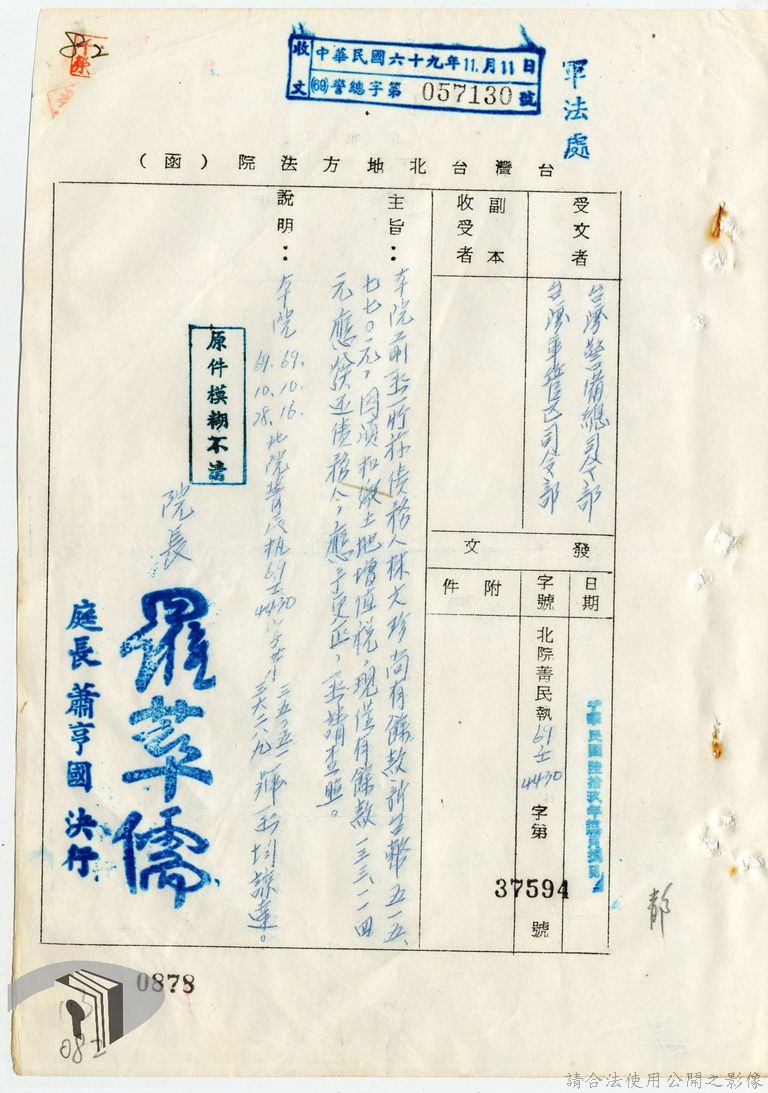 收文
中華民國六十九年11.月11日
(69)警總字第 057130 號
軍法處
台灣台北地方法院（函）
受文者
台灣警備總司令部
台灣軍管區司令部
副本
收受者
發文
日期
字號
北院菁民執69士4430字第37594號
附件
主旨：本院前函所稱債務人林文珍尚有餘款新台幣五一五、
七七〇元，因須扣繳土地增值稅，現僅有餘款一三三一四
元應發還債務人，應予更正，函請查照。
說明：本院69.10.16.
69.10.28.北院菁民執69士4430字第三五五五一
三六二六九號函計諒達。
原件模糊不清
院長
羅萃儒
庭長 蕭亨國 決行
0878
082
請合法使用公開之影像